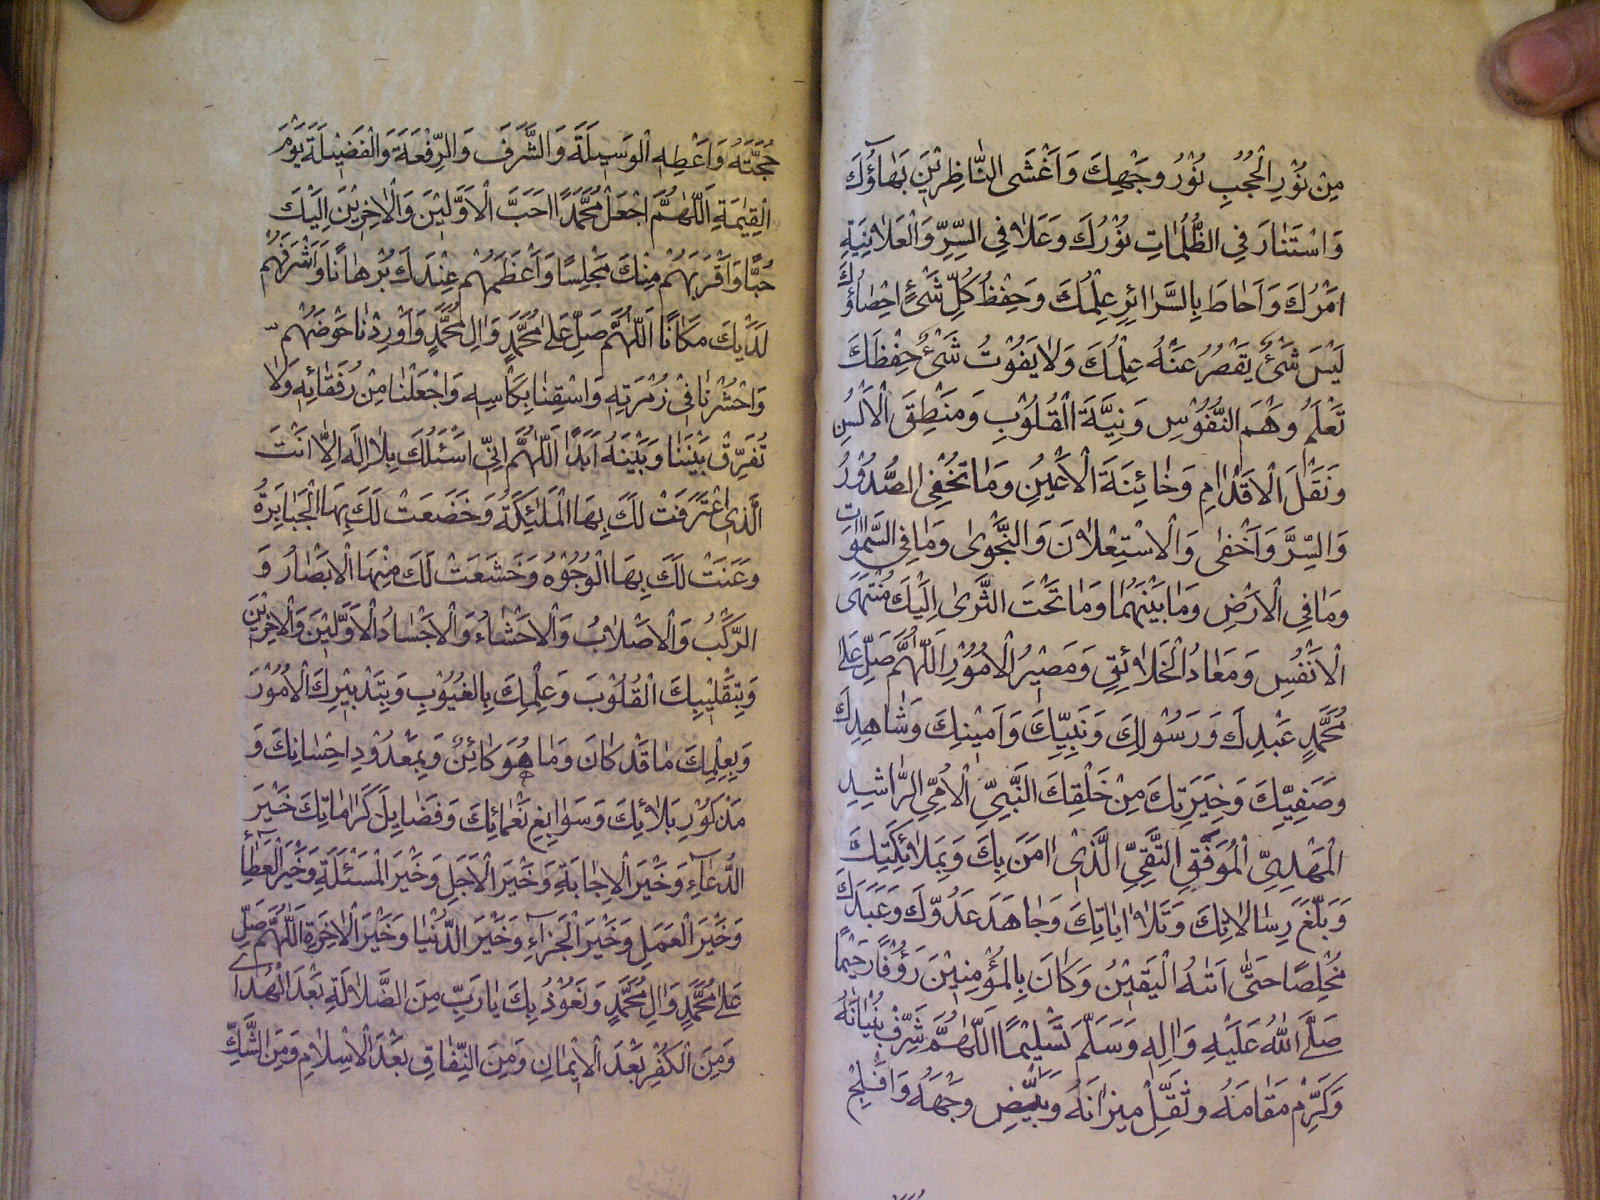 مِنْ نُوْرِ الْحُجُبِ نُوْرُ وَجْهِكَ وَاَغْشَى النَّاظِرِيْنَ بَهَاۤؤُكَ
وَاسْتَنَارَ فِي الظُّلُمَاتِ نُوْرُكَ وَعَلَا فِي السِّرِّ وَالْعَلَانِيَةِ
اَمْرُكَ وَاَحَاطَ بِالسَّرَائِرِ عِلْمُكَ وَحِفْظُ كُلِّ شَيْءٍ اِحْصَاؤُكَ
لَيْسَ شَيْءٌ يَقْصُرُ عَنْهُ عِلْمُكَ وَلَا يَفُوْتُ شَيْءٌ حِفْظَكَ
تَعْلَمُ وَهْمَ النُّفُوْسِ وَنِيَّةَ الْقُلُوْبِ وَمَنْطِقَ الْاَلْسُنِ
وَنَقْلَ الْاَقْدَامِ وَخَائِنَةَ الْاَعْيُنِ وَمَا تُخْفِي الصُّدُوْرُ
وَالسِّرَّ وَاَخْفٰى وَالْاِسْتِعْلَانَ وَالنَّجْوٰى وَمَا فِي السَّمٰوَاتِ
وَمَا فِي الْاَرْضِ وَمَا بَيْنَهُمَا وَمَا تَحْتَ الثَّرٰى اِلَيْكَ مُنْتَهَى
الْاَنْفُسِ وَمَعَادُ الْخَلَائِقِ وَمَصِيْرُ الْاُمُوْرِ اَللّٰهُمَّ صَلِّ عَلٰى
مُحَمَّدٍ عَبْدِكَ وَرَسُوْلِكَ وَنَبِيِّكَ وَاَمِيْنِكَ وَشَاهِدِكَ
وَصَفِيِّكَ وَخِيَرَتِكَ مِنْ خَلْقِكَ النَّبِيِّ الْاُمِّيِّ الرَّاشِدِ
الْمَهْدِيِّ الْمُوَفَّقِ التَّقِيِّ الَّذِيْ اٰمَنَ بِكَ وَبِمَلَائِكَتِكَ
وَبَلَّغَ رِسَالَاتِكَ وَتَلَا اٰيَاتِكَ وَجَاهَدَ عَدُوَّكَ وَعَبَدَكَ
مُخْلِصًا حَتّٰى اَتٰىهُ الْيَقِيْنُ وَكَانَ بِالْمُؤْمِنِيْنَ رَؤُفًا رَحِيْمًا
صَلَّى اللّٰهُ عَلَيْهِ وَاٰلِهِ وَسَلَّمَ تَسْلِيْمًا اَللّٰهُمَّ شَرِّفْ بُنْيَانَهُ
وَكَرِّمْ مَقَامَهُ وَثَقِّلْ مِيْزَانَهُ وَبَيِّضْ وَجْهَهُ وَاَفْلِجْ
حُجَّتَهُ وَاَعْطِهِ الْوَسِيْلَةَ وَالشَّرَفَ وَالرِّفْعَةَ وَالْفَضِيْلَةَ يَوْمَ
الْقِيٰمَةِ اَللّٰهُمَّ اجْعَلْ مُحَمَّدًا اَحَبَّ الْاَوَّلِيْنَ وَالْاٰخِرِيْنَ اِلَيْكَ
حُبًّا وَاَقْرَبَهُمْ مِنْكَ مَجْلِسًا وَاَعْظَمَهُمْ عِنْدَكَ بُرْهَانًا وَاَشْرَفَهُمْ
لَدَيْكَ مَكَانًا اَللّٰهُمَّ صَلِّ عَلٰى مُحَمَّدٍ وَاٰلِ مُحَمَّدٍ وَاَوْرِدْنَا حَوْضَهُمْ
وَاحْشُرْنَا فِيْ زُمْرَتِهِ وَاسْقِنَا بِكَاْسِهِ وَاجْعَلْنَا مِنْ رُفَقَائِهِ وَلَا
تُفَرِّقْ بَيْنَنَا وَبَيْنَهُ اَبَدًا اَللّٰهُمَّ اِنِّيْ اَسْئَلُكَ بِلَا اِلٰهَ اِلَّا اَنْتَ
الَّذِيْ اعْتَرَفَتْ لَكَ بِهَا الْمَلٰئِكَةُ وَخَضَعَتْ لَكَ بِهَا الْجَبَابِرَةُ
وَعَنَتْ لَكَ بِهَا الْوُجُوْهُ وَخَشَعَتْ لَكَ مِنْهَا الْاَبْصَارُ وَ
الرُّكَبُ وَالْاَصْلَابُ وَالْاَحْشَاءُ وَالْاَجْسَادُ الْاَوَّلِيْنَ وَالْاٰخِرِيْنَ
وَبِتَقْلِيْبِكَ الْقُلُوْبَ وَعِلْمِكَ بِالْغُيُوْبِ وَبِتَدْبِيْرِكَ الْاُمُوْرَ
وَبِعِلْمِكَ مَا قَدْ كَانَ وَمَا هُوَ كَائِنٌ وَبِمَعْدُوْدِ اِحْسَانِكَ وَ
مَذْكُوْرِ بَلَائِكَ وَسَوَابِغِ نَعْمَائِكَ وَفَضَايِلِ كَرَامَاتِكَ خَيْرَ
الدُّعَاۤءِ وَخَيْرَ الْاِجَابَةِ وَخَيْرَ الْاَجَلِ وَخَيْرَ الْمَسْئَلَةِ وَخَيْرَ الْعَطَاۤءِ
وَخَيْرَ الْعَمَلِ وَخَيْرَ الْجَزَاۤءِ وَخَيْرَ الدُّنْيَا وَخَيْرَ الْاٰخِرَةِ اَللّٰهُمَّ صَلِّ
عَلٰى مُحَمَّدٍ وَاٰلِ مُحَمَّدٍ وَنَعُوْذُ بِكَ يَا رَبِّ مِنَ الضَّلَالَةِ بَعْدَ الْهُدٰى
وَمِنَ الْكُفْرِ بَعْدَ الْاِيْمَانِ وَمِنَ النِّفَاقِ بَعْدَ الْاِسْلَامِ وَمِنَ الشَّكِّ